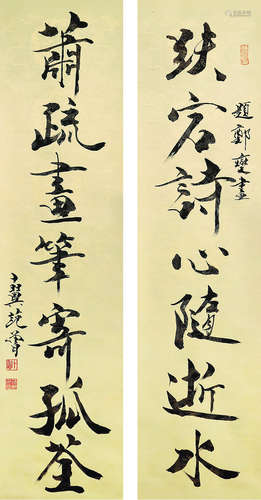 題鄭燮畫
跌宕詩心隨逝水
蕭疏畫筆寄孤荃